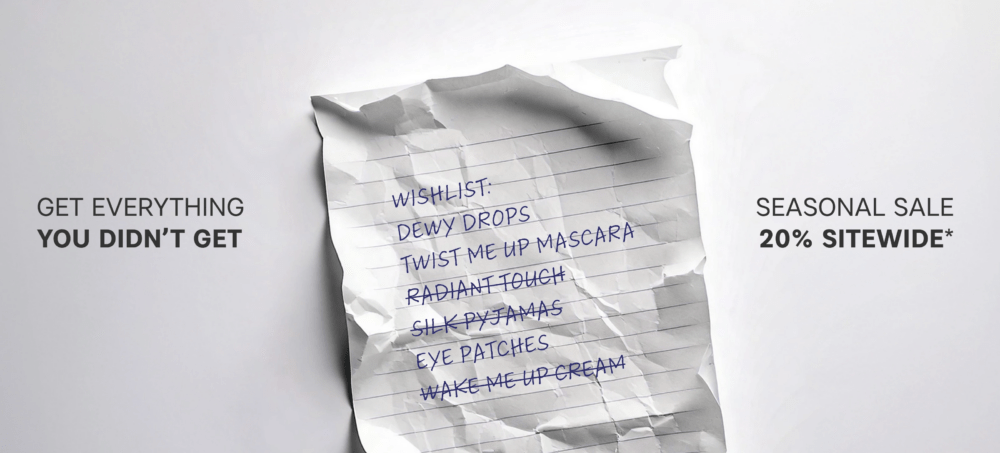 GET EVERYTHING
YOU DIDN'T GET
WISHLIST:
DEWY DROPS
TWIST ME UP MASCARA
RADIANT TOUCH
SILK PYJAMAS
EYE PATCHES
WAKE ME UP CREAM
SEASONAL SALE
20% SITEWIDE*